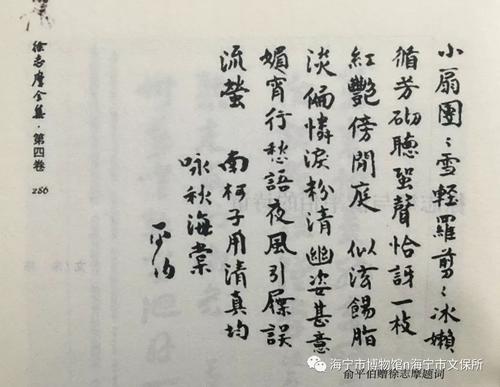 小扇團〻雪輕羅剪〻冰嬾
循芳砌聽蛩聲恰訝一枝
紅艷傍閒庭 似泫餳脂
淡偏憐淚粉清幽姿甚意
媚宵行愁語夜風引屧誤
流螢 南柯子用清真均
咏秋海棠
平伯
徐志摩全集·第四卷
286
俞平伯赠徐志摩题词
海宁市博物馆n海宁市文保所